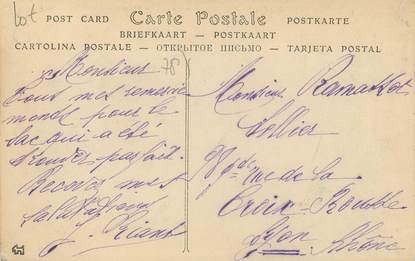 Lot
POST CARD Carte Postale POSTKARTE
BRIEFKAART - POSTKAART
CARTOLINA POSTALE - ОТКРЫТОЕ ПИСЬМО - TARJETA POSTAL
78
Monsieur
Tous mes remercie
ments pour le
sac qui a été
trouvé parfait.
Recevez mes
salutations
J. Riant
Monsieur
Sellier
rue de la
Croix-Rousse
Lyon Rhône